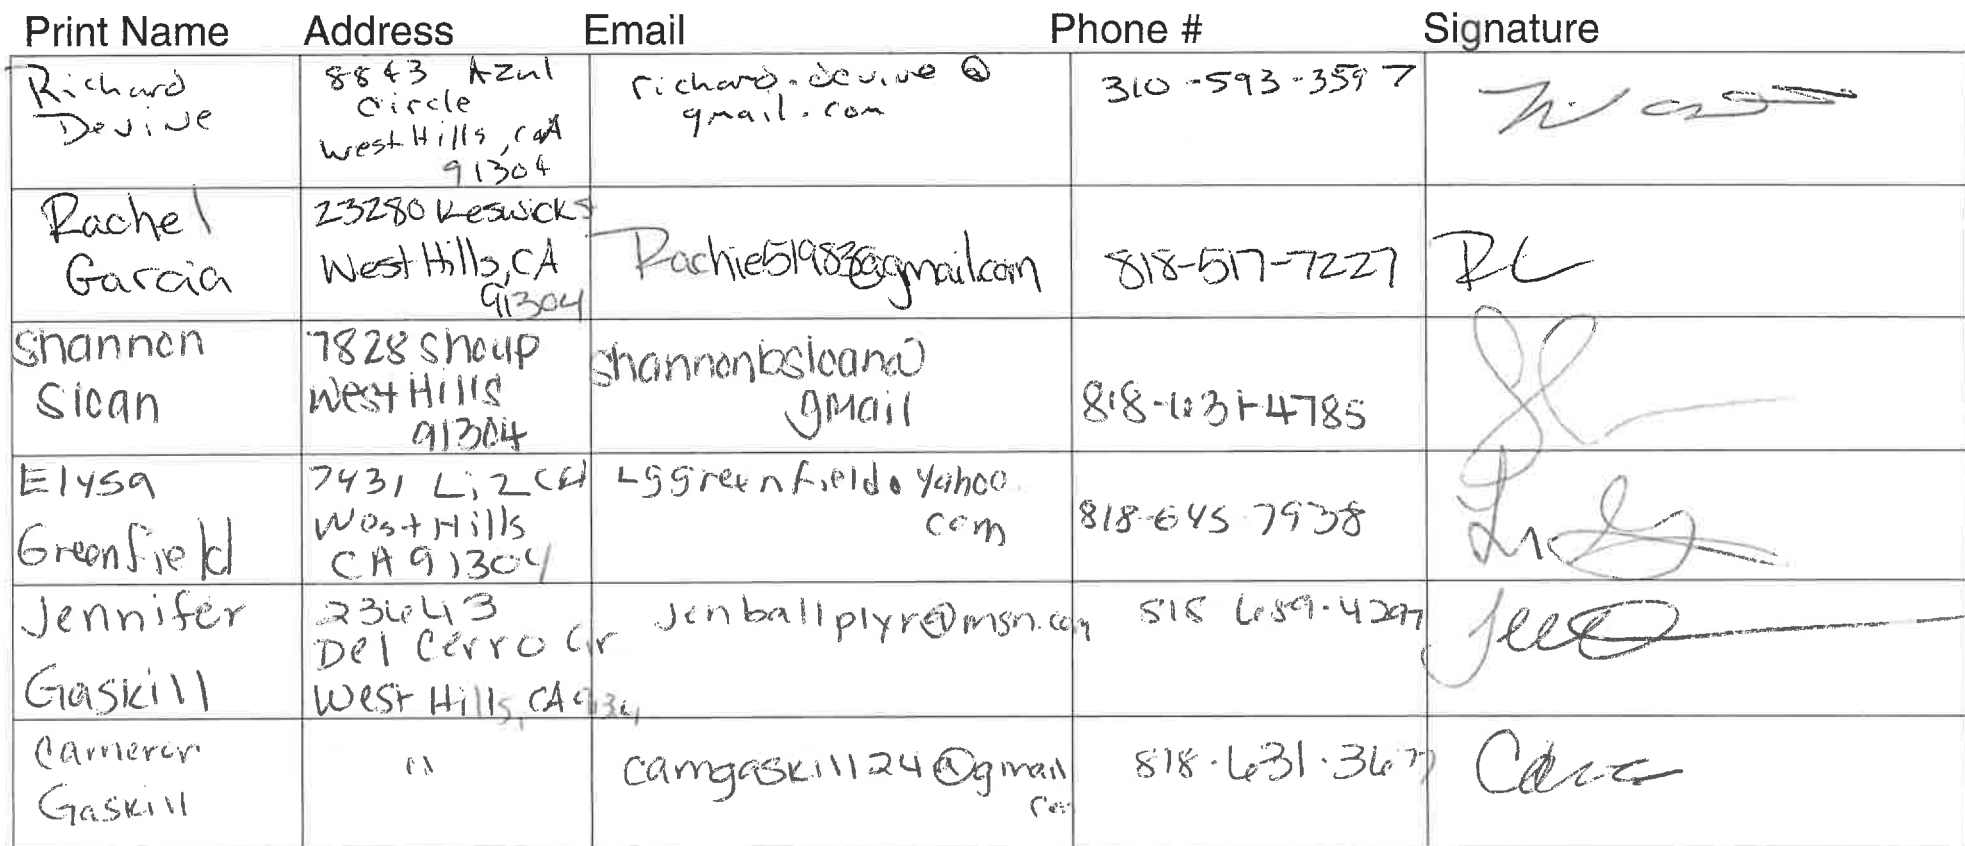 Print Name Address Email Phone # Signature
Richard
Devine
8843 Azul
Circle
West Hills, CA
91304
richard.devine @
gmail.com
310-593-3597
Rachel
Garcia
23280 Keswick St
West Hills, CA
91304
Rachie51983@gmail.com
818-517-7227
Shannon
Sloan
7828 Shoup
West Hills
91304
shannonbsloan@
gmail
818-631-4785
Elysa
Greenfield
7431
West Hills
CA 91304
Lggreenfield.yahoo
com
818-645 7938
Jennifer
Gaskill
23643
Del Cerro Cir
West Hills, CA
Jenballplyr@msn.com
818 689-4297
Cameron
Gaskill
"
camgaskill24@gmail
com
818.631.3677